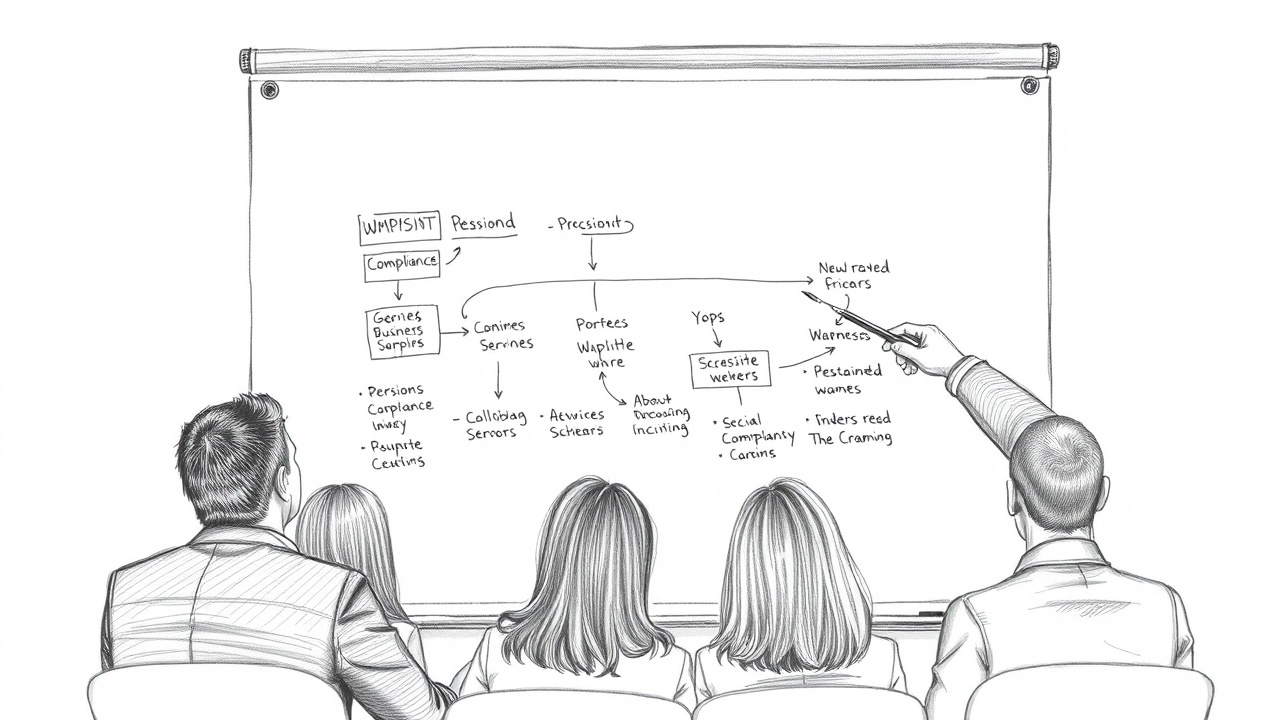 WMPISINT
Pessiond
- Precsiont
Compliance
New raved
Fricars
Gernies
Business
Sarples
Conimes
Servines
Portees
Waplitle
whre
Yops
Warness
Scresiite
wekers
• Pestained
wames
• Persions
Corplance
• Paupite
- Callobiag
Servors
• Atwices
Schears
About
Incuting
• Social
Complianty
• Carcins
• Tnders read
The Craming